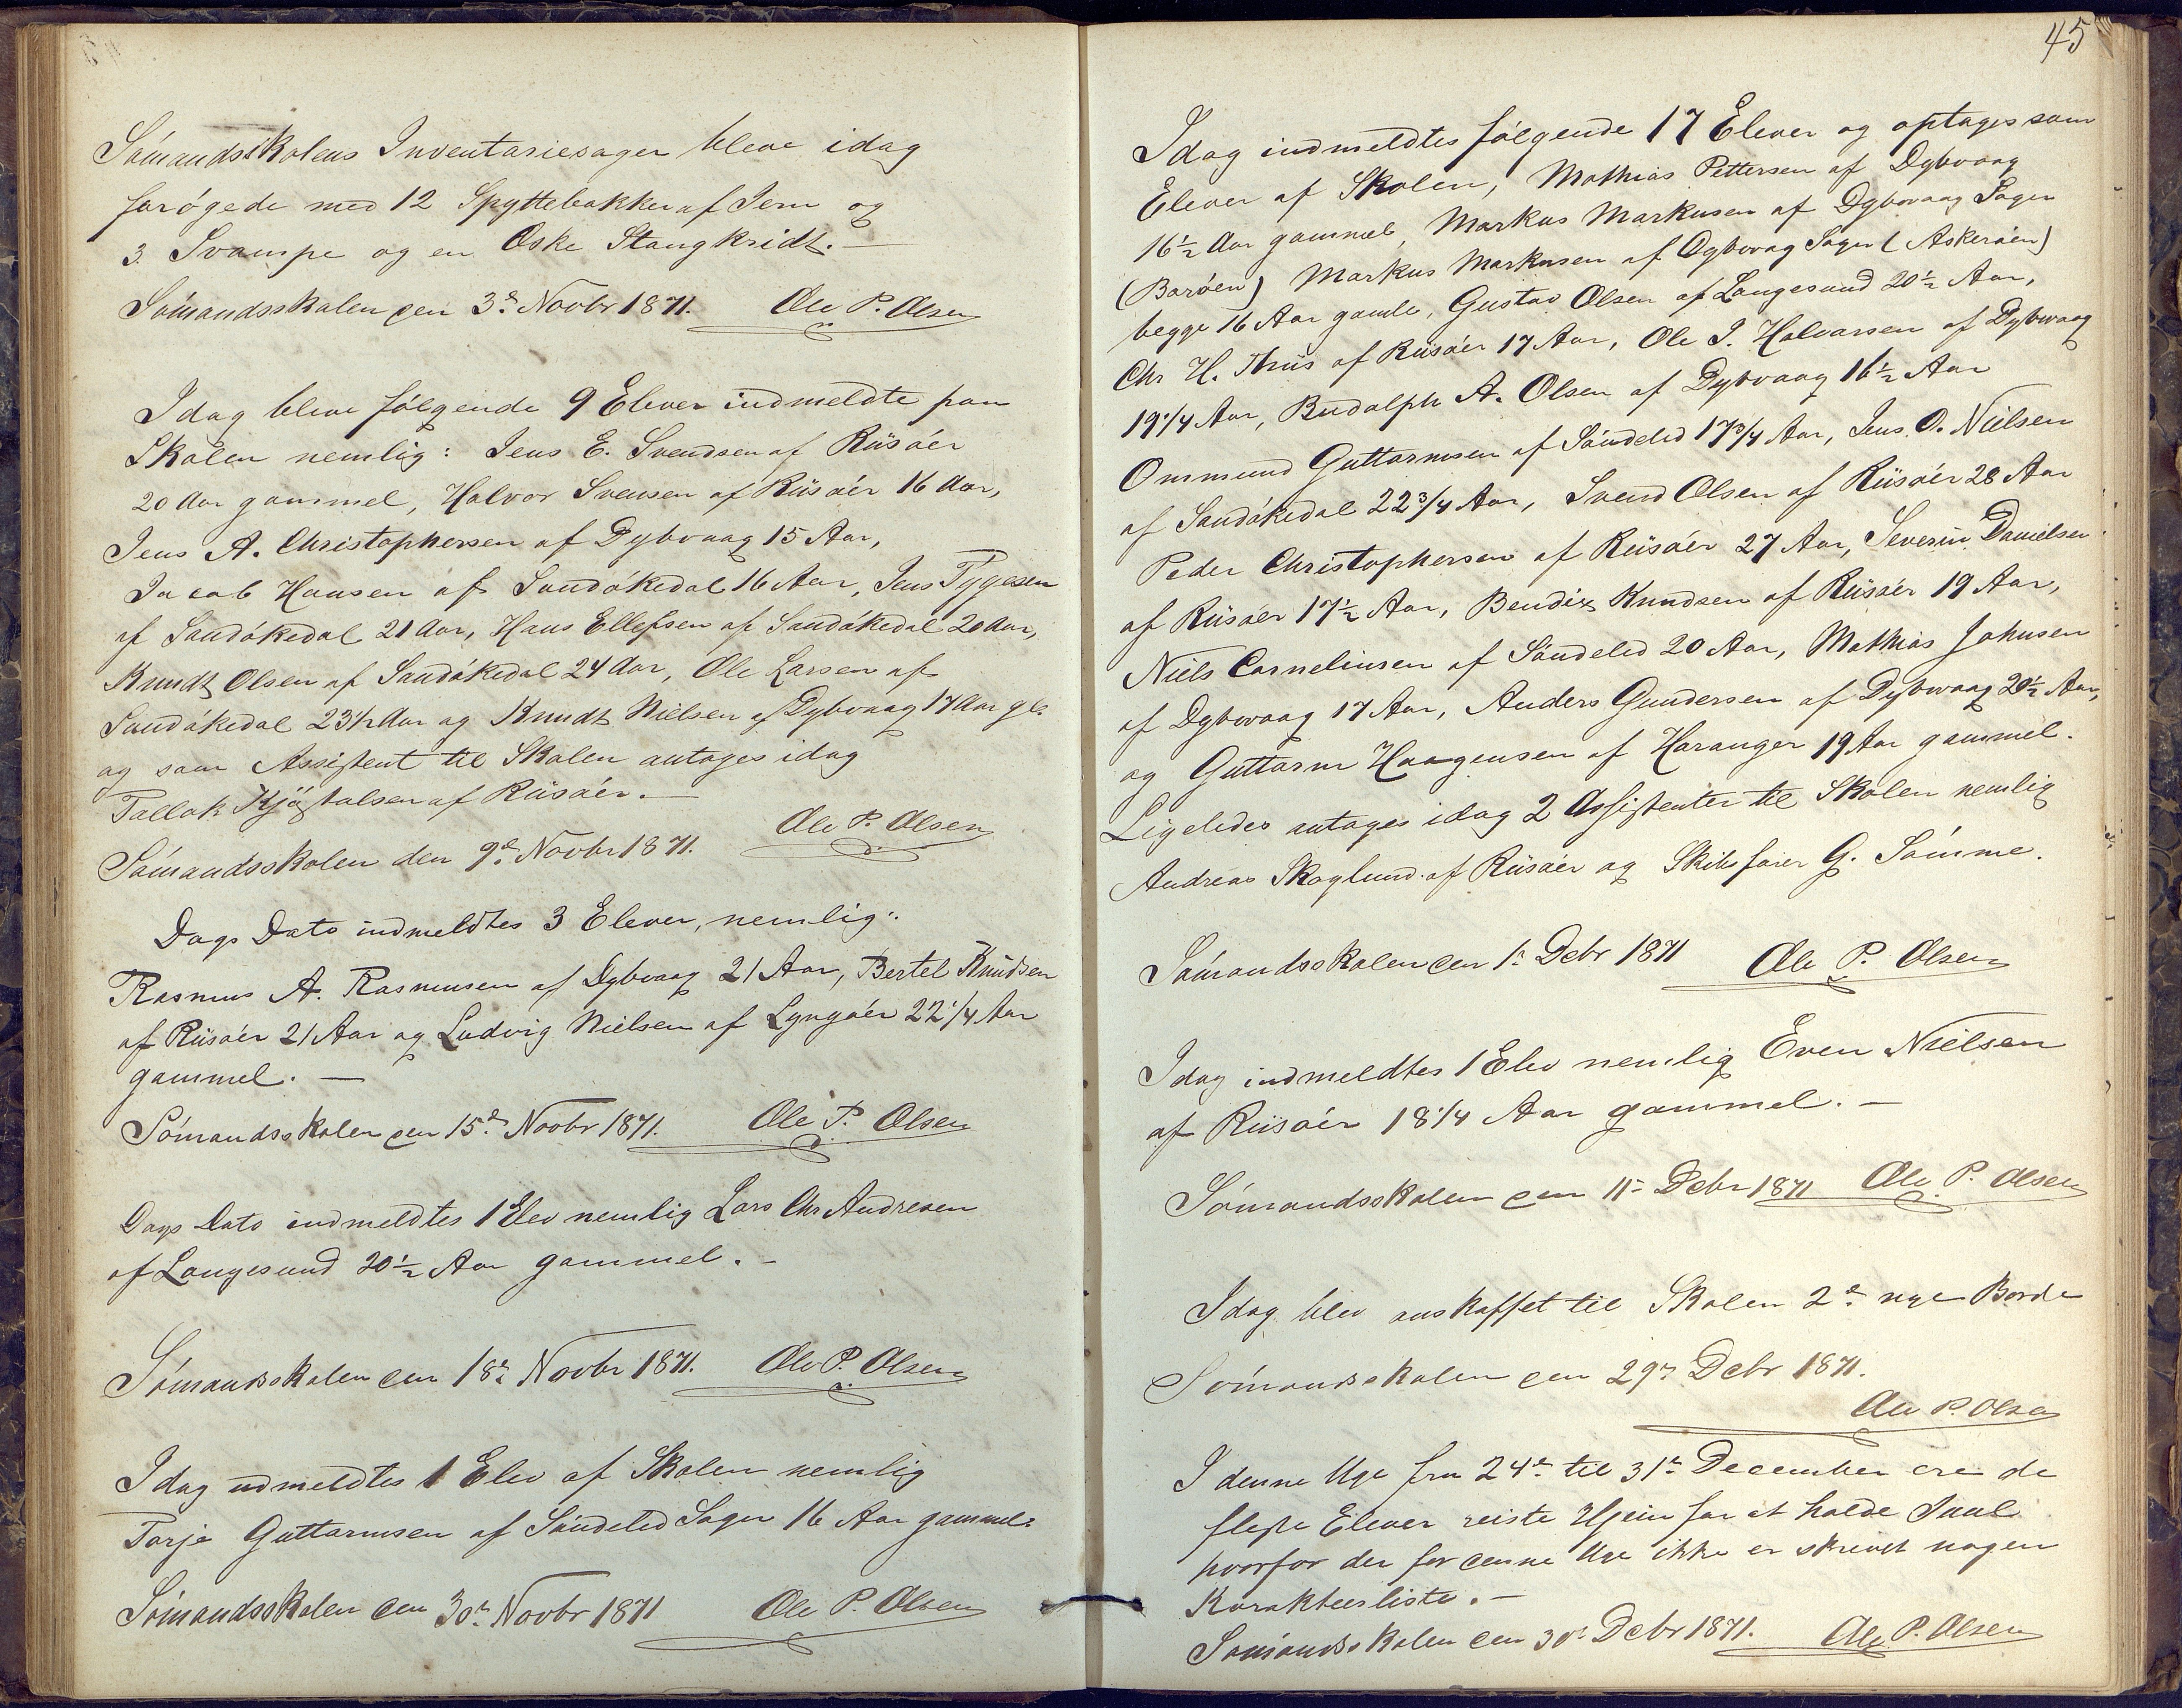 Sómandsskolens Inventariesager bleve idag
forógede med 12 Spyttebakker af Jern og
3 Svampe og en Æske Stangkridt.—
Sómandsskolen den 3die Novbr 1871. Ole P. Olsen
Idag bleve fólgende 9 Elever indmeldte paa
Skolen nemlig: Jens E. Svendsen af Riisóer
20 Aar gammel, Halvor Svensen af Riisóer 16 Aar,
Jens A. Christophersen af Dybvaag 15 Aar,
Jacob Hansen af Sandókedal 16 Aar, Jens Tygesen
af Sandókedal 21 Aar, Hans Ellefsen af Sandókedal 20 Aar,
Knudt Olsen af Sandókedal 24 Aar, Ole Larsen af
Sandókedal 23½ Aar og Knudt Nielsen af Dybvaag 17 Aar gl.
og som Assistent til Skolen antoges idag
Tallak Kjóstolsen af Riisóer.—
Sómandsskolen den 9de Novbr 1871. Ole P. Olsen
Dags Dato indmeldtes 3 Elever, nemlig:
Rasmus A. Rasmusen af Dybvaag 21 Aar, Bertel Knudsen
af Riisóer 21 Aar og Ludvig Nielsen af Lyngóer 22 1/4 Aar
gammel.—
Sómandsskolen den 15de Novbr 1871. Ole P. Olsen
Dags Dato indmeldtes 1 Elev nemlig Lars Chr Andresen
af Langesund 20½ Aar gammel.—
Sómandsskolen den 18de Novbr 1871. Ole P. Olsen
Idag udmeldtes 1 Elev af Skolen nemlig
Torje Guttormsen af Sóndeled Sogn 16 Aar gammel.
Sómandsskolen den 30te Novbr 1871 Ole P. Olsen
45
Idag indmeldtes fólgende 17 Elever og optoges som
Elever af Skolen, Mathias Pettersen af Dybvaag
16½ Aar gammel, Markus Markusen af Dybvaag Sogn
(Boróen) Markus Markusen af Dybvaag Sogn (Askeróen)
begge 16 Aar gamle, Gustav Olsen af Langesund 20½ Aar,
Chr H. Thiis af Riisóer 17 Aar, Ole J. Halvorsen af Dybvaag
19 1/4 Aar, Rudolph A. Olsen af Dybvaag 16½ Aar
Ommund Guttormsen af Sóndeled 17 3/4 Aar, Jens O. Nielsen
af Sandókedal 22 3/4 Aar, Svend Olsen af Riisóer 28 Aar
Peder Christophersen af Riisóer 27 Aar, Severin Danielsen
af Riisóer 17½ Aar, Bendix Knudsen af Riisóer 19 Aar,
Niels Corneliusen af Sóndeled 20 Aar, Mathias Johnsen
af Dybvaag 17 Aar, Anders Gundersen af Dybvaag 20½ Aar,
og Guttorm Haagensen af Haranger 19 Aar gammel.
Ligeledes antoges idag 2 Assistenter til Skolen nemlig
Andreas Skoglund af Riisóer og Skibsfórer G. Sómme.
Sómandsskolen den 1ste Debr 1871 Ole P. Olsen
Idag indmeldtes 1 Elev nemlig Even Nielsen
af Riisóer 18 1/4 Aar gammel.—
Sómandsskolen den 11te Debr 1871 Ole P. Olsen
Idag blev anskaffet til Skolen 2de nye Borde
Sómandsskolen den 29de Debr 1871.
Ole P. Olsen
I denne Uge fra 24de til 31te December ere de
fleste Elever reiste Hjem for at holde Juul
hvorfor der for denne Uge ikke er skrevet nogen
Karakteerliste.—
Sómandsskolen den 30te Debr 1871. Ole P. Olsen